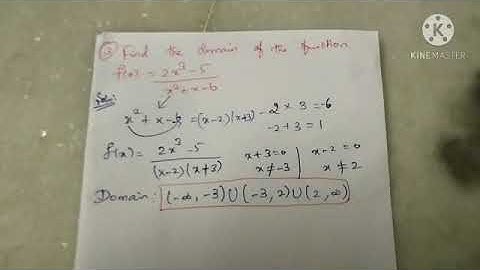 ③ Find the domain of the function
f(x) = 2x³ - 5
x² + x - 6
Sol:
x² + x - 6 = (x-2)(x+3) -2 × 3 = -6
-2 + 3 = 1
f(x) = 2x³ - 5 x+3=0 x-2=0
(x-2)(x+3) x ≠ -3 x ≠ 2
Domain: (-∞, -3) ∪ (-3, 2) ∪ (2, ∞)
KINEMASTER